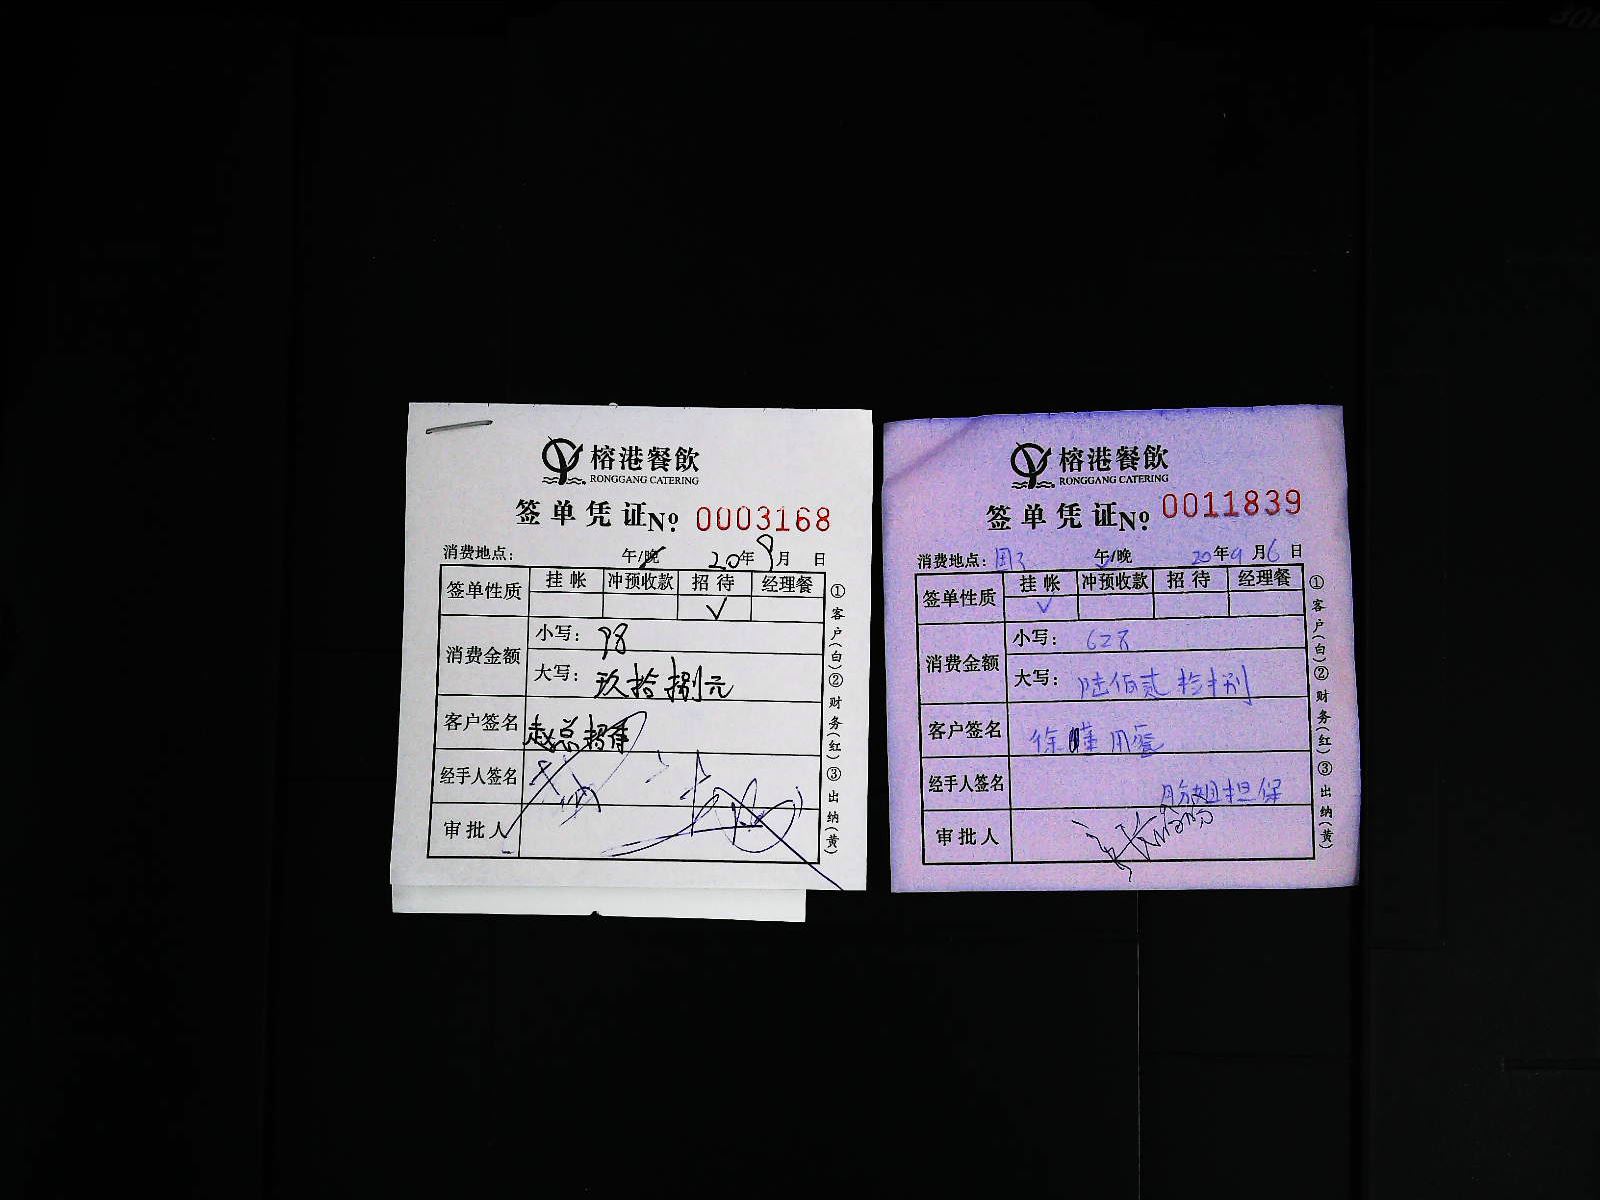 榕港餐飲
RONGGANG CATERING
签单凭证 № 0003168
消费地点： 午/晚 20年9月 日
签单性质 挂帐 冲预收款 招待 经理餐
√
消费金额 小写： 98
大写： 玖拾捌元
客户签名 赵总招待
经手人签名
审批人
①客户(白)②财务(红)③出纳(黄)
榕港餐飲
RONGGANG CATERING
签单凭证 № 0011839
消费地点： 午/晚 20年9月6日
签单性质 挂帐 冲预收款 招待 经理餐
√
消费金额 小写： 628
大写： 陆佰贰拾捌
客户签名 徐 用餐
经手人签名 姐担保
审批人
①客户(白)②财务(红)③出纳(黄)